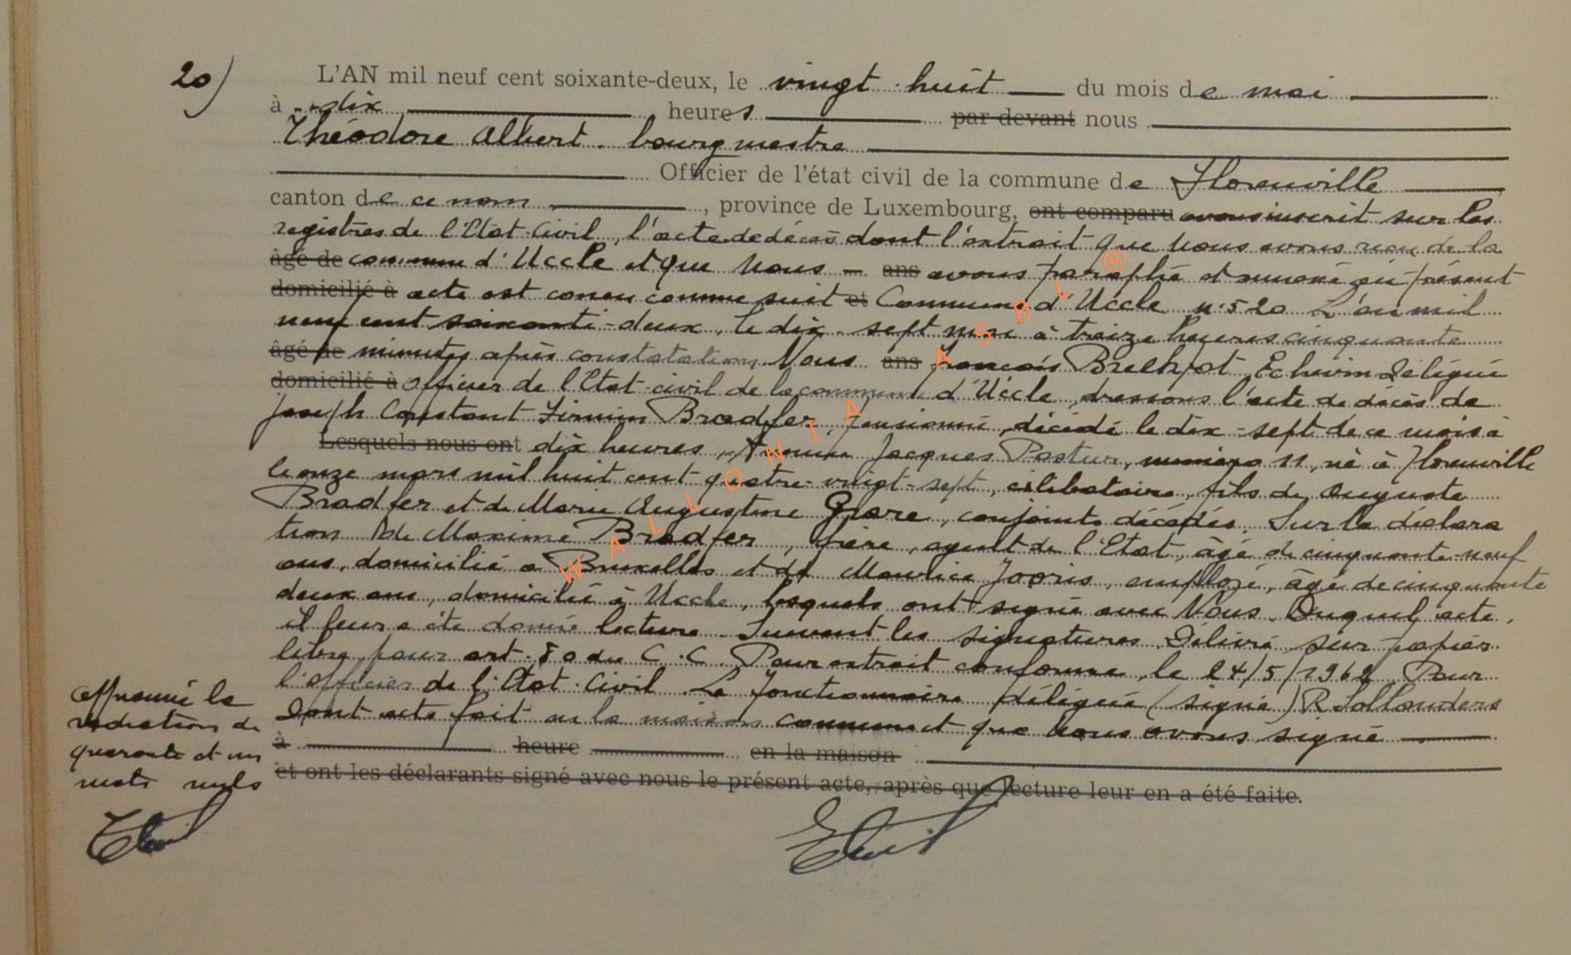 20) L'AN mil neuf cent soixante-deux, le vingt huit du mois de mai
à dix heures par devant nous
Théodore Albert. bourgmestre
Officier de l'état civil de la commune de Florenville
canton de ce nom, province de Luxembourg, ont comparu avons inscrit sur les
registres de l'Etat-Civil, l'acte de décès dont l'extrait que Nous avons reçu de la
âgé de commune d'Uccle et que Nous - ans avons paraphé et annexé au présent
domicilié à acte est conçu comme suit et Commune d'Uccle n°520 L'an mil
neuf cent soixante-deux, le dix-sept mai à treize heures cinquante
âgé de minutes après constatation, Nous ans François Officier Echevin délégué
domicilié à officier de l'Etat-civil de la commune d'Uccle, dressons l'acte de décès de
Joseph Constant Firmin Bradfer, pensionné, décédé le dix-sept de ce mois à
Lesquels nous ont dix heures, Avenue Jacques Pastur, numéro 11, né à Florenville
le onze mars mil huit cent quatre-vingt-sept, célibataire, fils de Auguste
Bradfer et de Marie Augustine, conjoints décédés. Sur la déclara
tion de Maxime Bradfer, frère, agent de l'Etat, âgé de cinquante-neuf
ans, domicilié à Bruxelles et de Maurice Jooris, employé, âgé de cinquante
deux ans, domicilié à Uccle, lesquels ont signé avec Nous. Duquel acte,
il leur a été donné lecture. Suivent les signatures. Délivré sur papier
libre pour art. 80 du C.C. Pour extrait conforme, le 24/5/1962, Pour
l'officier de l'Etat-Civil. Le fonctionnaire délégué (signé) R.
Dont acte fait en la maison communale et que Nous avons signé
à heure en la maison
et ont les déclarants signé avec nous le présent acte, après que lecture leur en a été faite.
approuvé la
radiation de
quarante et un
mots nuls
WALLONIA ASBL ®